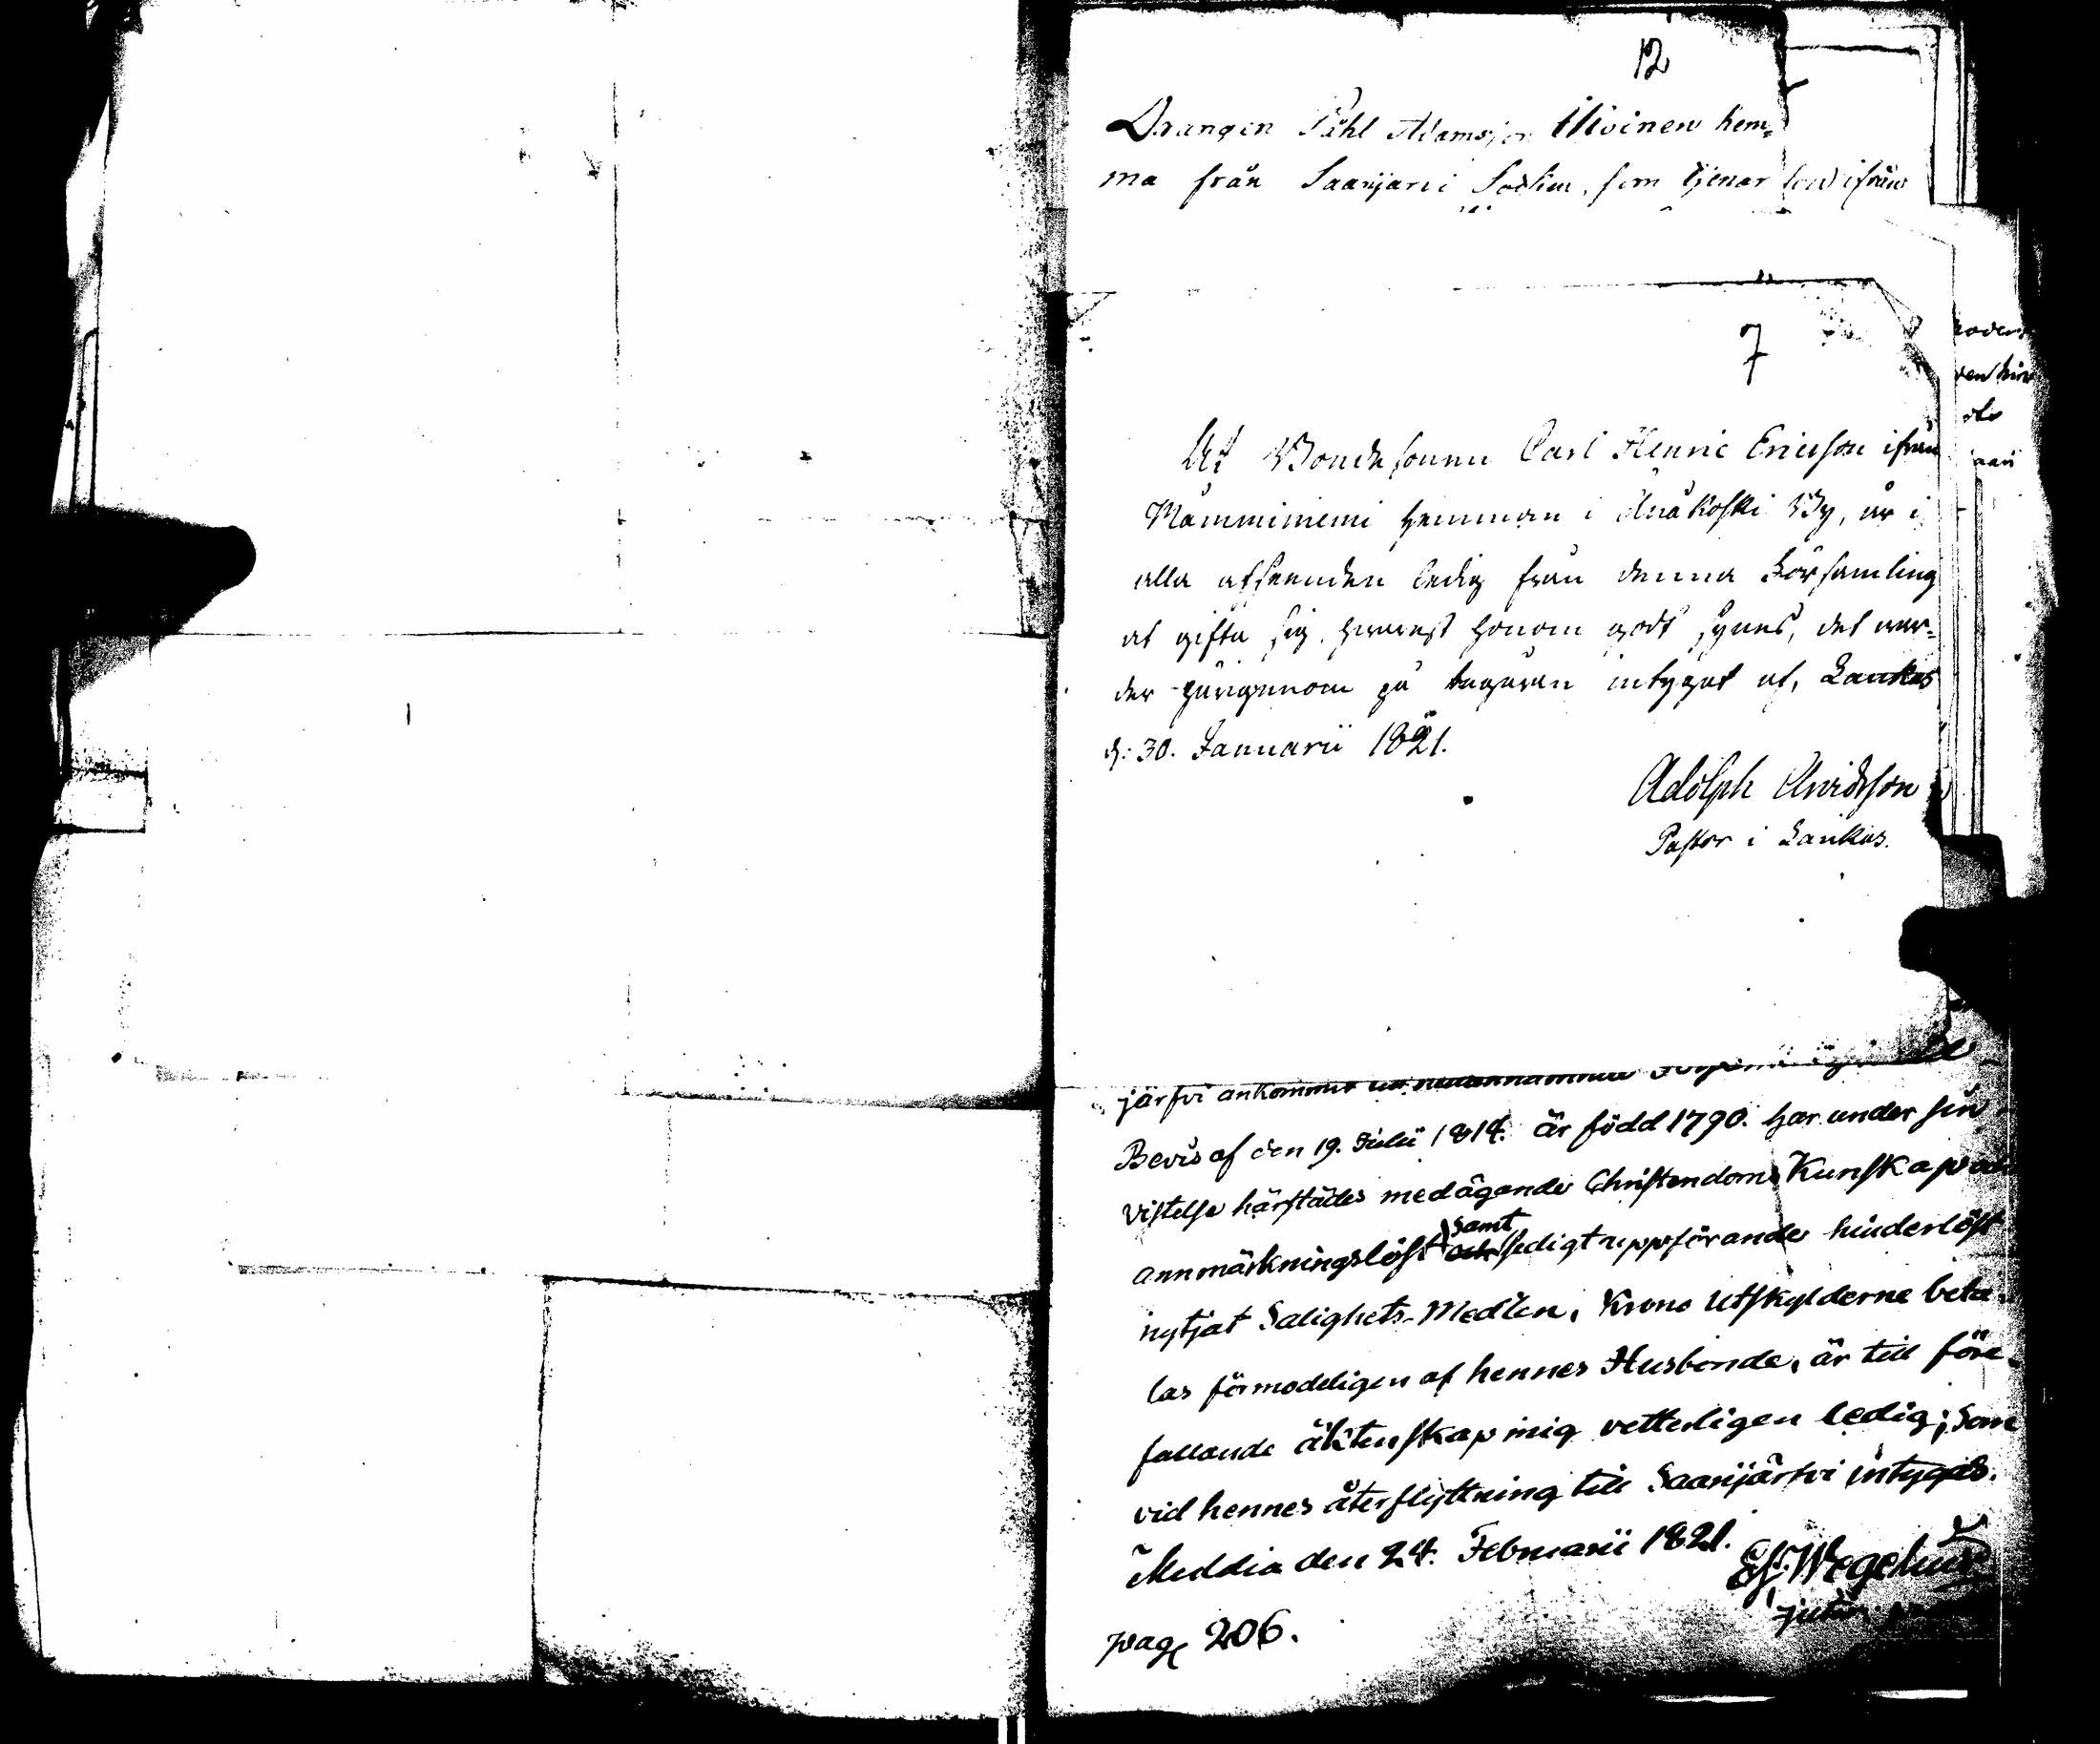 12
Drängen Påhl Adamsson Ilivinen hem=
ma från Saarijarvi Sochn, som tjenar
7
At Bondesonen Carl Henric Ericsson ifrån
Mämminiemi hemman i Änäkoski By, är i
alla afseenden ledig från denna Församling
at gifta sig hvarest honom godt synes, det var=
der härigenom på begäran intygat af, Laukas
d: 30. Januarii 1821.
Adolph Arvidsson
Pastor i Laukas.
järfvi ankommit
Bevis af den 19. Julii 1814. är född 1790. har under sin
vistelse härstädes medägande Christendoms Kunskap och
annmärkningslöst samt sedigt uppförande hinderlöst
nytjat Salighets-Medlen, Krono Utskylderne beta-
las förmodeligen af hennes Husbonde, är till före-
fallande äktenskap mig vetterligen ledig; som
vid hennes återflyttning till Saarijärfvi intygas.
Muldia den 24. Februarii 1821.
Es. Wegelius
pag 206.